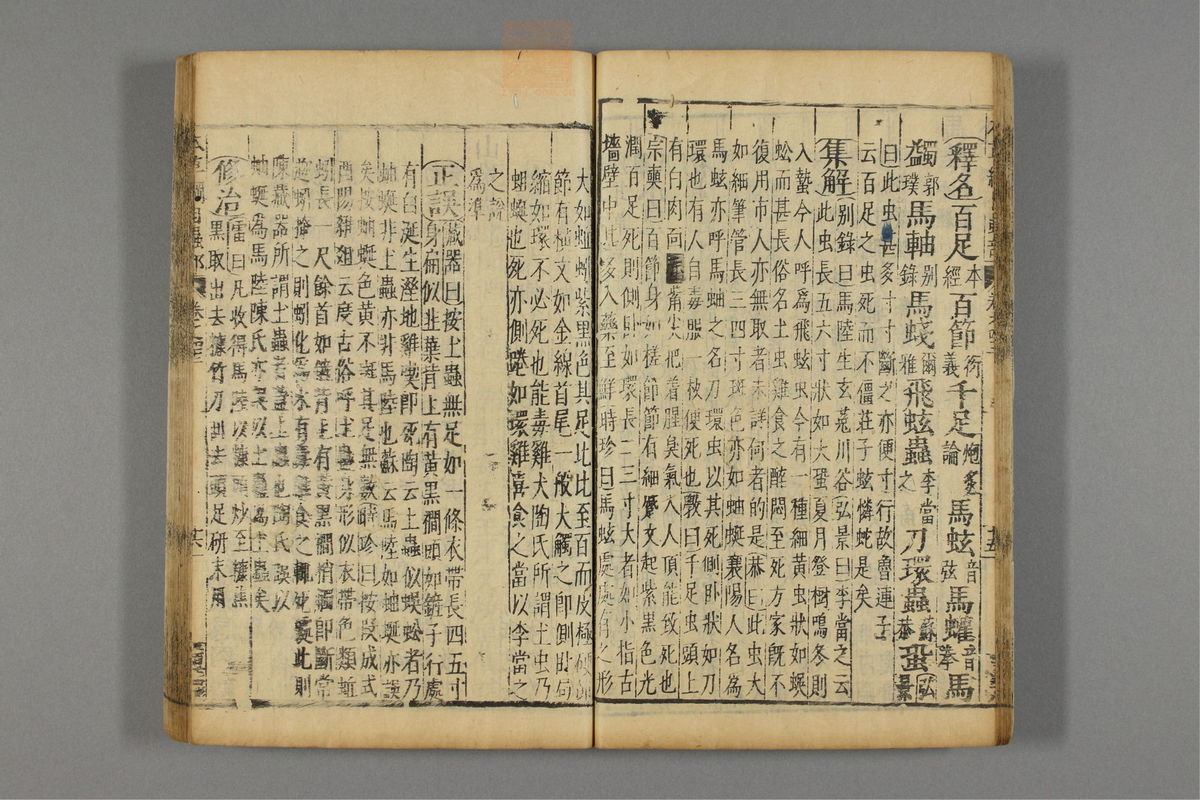 釋名百足本經百節衍義千足炮炙論馬蚿音弦馬蠸音拳馬
蠲郭璞馬軸別錄馬蛷爾雅飛蚿蟲李當之刀環蟲蘇恭蛩弘景
曰此虫甚多寸寸斷之亦便寸行故魯連子
云百足之虫死而不僵莊子蚿憐蛇是矣
集解別錄曰馬陸生玄菟川谷弘景曰李當之云
此虫長五六寸狀如大蛩夏月登樹鳴冬則
入蟄今人呼爲飛蚿虫今有一種細黃虫狀如蜈
蚣而甚長俗名土虫雞食之醉悶至死方家既不
復用市人亦無取者未詳何者的是恭曰此虫大
如細筆管長三四寸斑色亦如蚰蜒襄陽人名爲
馬蚿亦呼馬蚰之名刀環虫以其死側卧狀如刀
環也有人自毒服一枚便死也斅曰千足虫頭上
有白肉面 嘴尖把着腥臭氣入人頂能致死也
宗奭曰百節身如槎節節有細蹙文起紫黑色光
潤百足死則側卧如環長二三寸大者如小指古
墻壁中甚多入藥至鮮時珍曰馬蚿處處有之形
大如蚯蚓紫黑色其足比比至百而皮極硬
節有橫文如金線首尾一般大觸之即側卧
縮如環不必死也能毒雞犬陶氏所謂土虫乃
蚰蜒也死亦側蜷如環雞喜食之當以李當之
之說
爲準
正誤藏器曰按土蟲無足如一條衣帶長四五寸
身扁似韭葉背上有黃黑襉頭如鏟子行處
有白涎生溼地雞喫即死陶云土蟲似蜈蚣者乃
蚰蜒非土蟲亦非馬陸也蘇云馬陸如蚰蜒亦誤
矣按蚰蜒色黃不斑其足無數時珍曰按段成式
酉陽雜俎云度古俗呼土蠱身形似衣帶色類蚯
蚓長一尺餘首如鏟背上有黃黑襉稍觸即斷常
趁蚓掩之則蚓化爲水有毒雞食之輒死據此則
陳藏器所謂土蟲者蓋土蠱也陶氏誤以
蚰蜒爲馬陸陳氏亦誤以土蠱爲土蟲矣
修治雷曰凡收得馬陸以糠頭炒至糠焦
黑取出去糠竹刀刮去頭足研末用